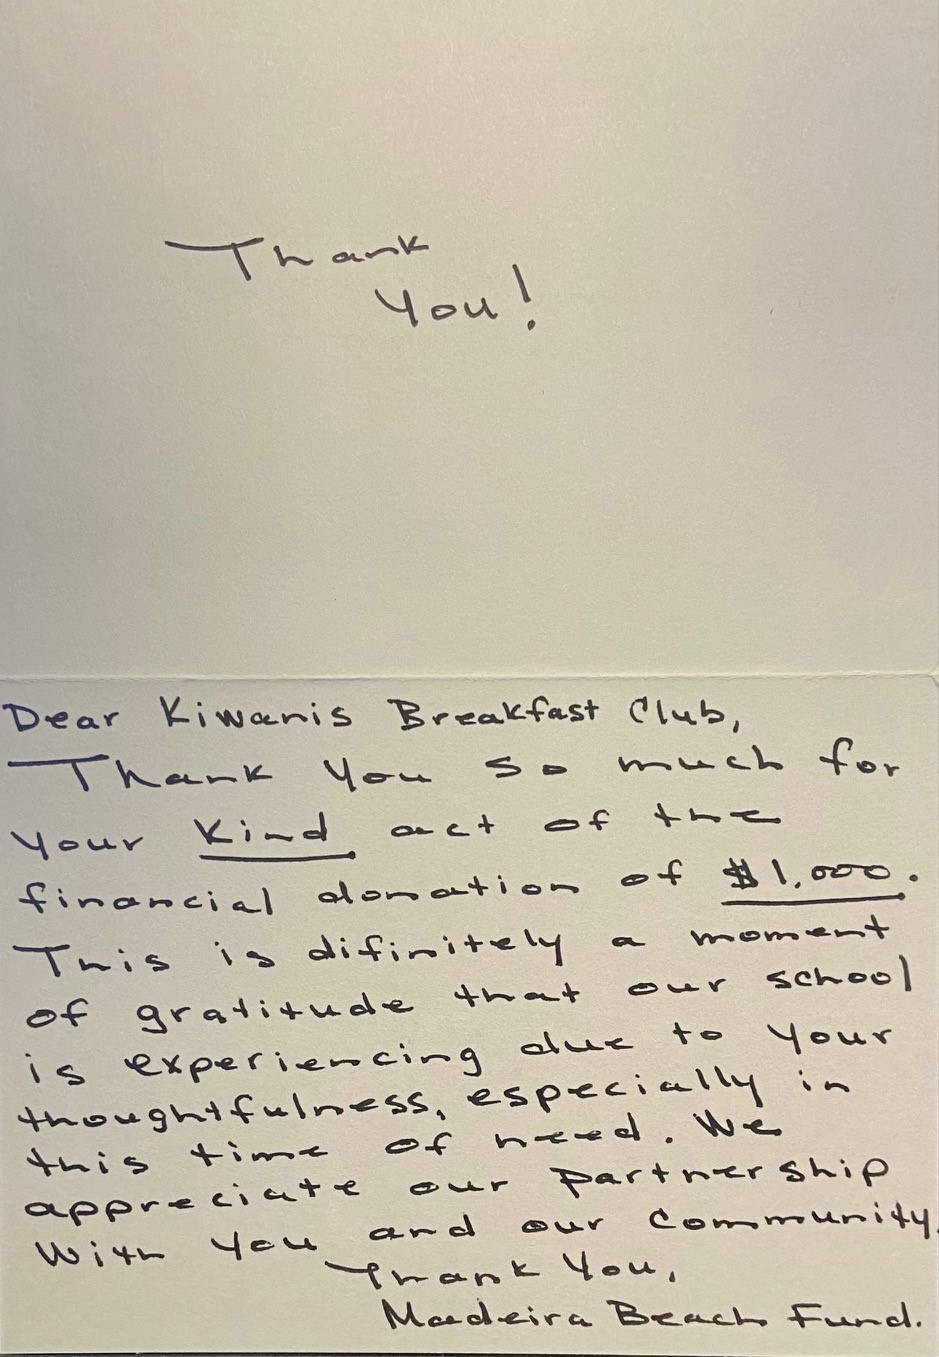 Thank
You!
Dear Kiwanis Breakfast Club,
Thank You so much for
your Kind act of the
financial donation of $1,000.
This is difinitely a moment
of gratitude that our school
is experiencing due to your
thoughtfulness, especially in
this time of need. We
appreciate our partnership
with you and our community.
Thank You,
Madeira Beach Fund.